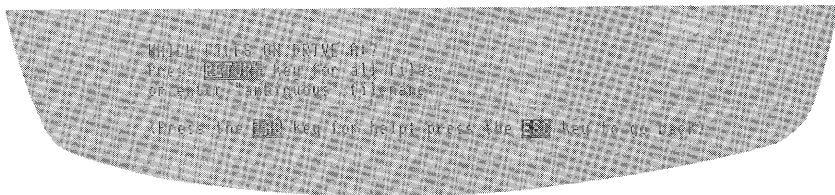 WHICH FILES ON DRIVE A:?
Press RETURN key for all files
or enter "ambiguous" filename

(Press the key for help; press the ESC key to go back)